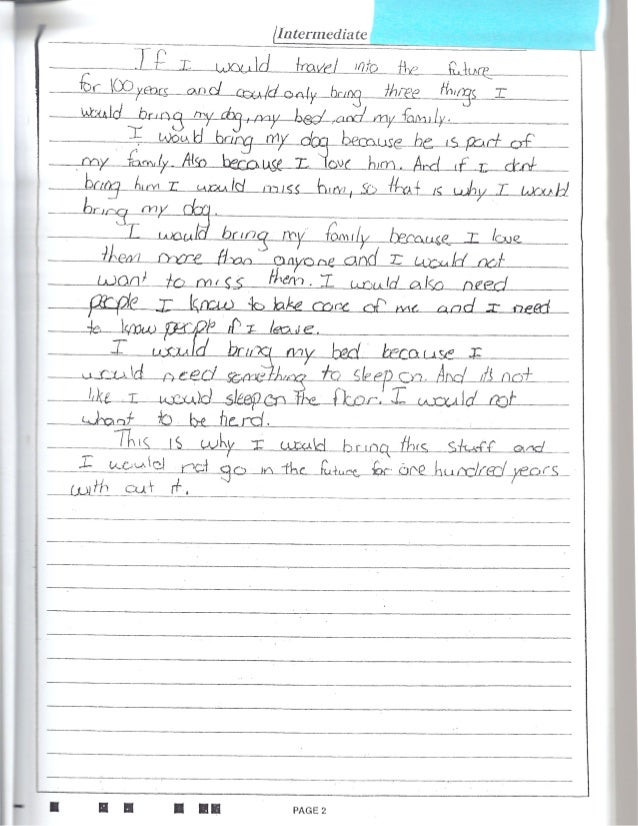 Intermediate
If I would travel into the future
for 100 years and could only bring three things I
would bring my dog, my bed, and my family.
I would bring my dog because he is part of
my family. Also because I love him. And if I dont
bring him I would miss him, so that is why I would
bring my dog.
I would bring my family because I love
them more than anyone and I would not
want to miss them. I would also need
people I know to take care of me and I need
to know people if I leave.
I would bring my bed because I
would need something to sleep on. And it's not
like I would sleep on the floor. I would not
whant to be herd.
This is why I would bring this stuff and
I would not go in the future for one hundred years
with out it.
PAGE 2